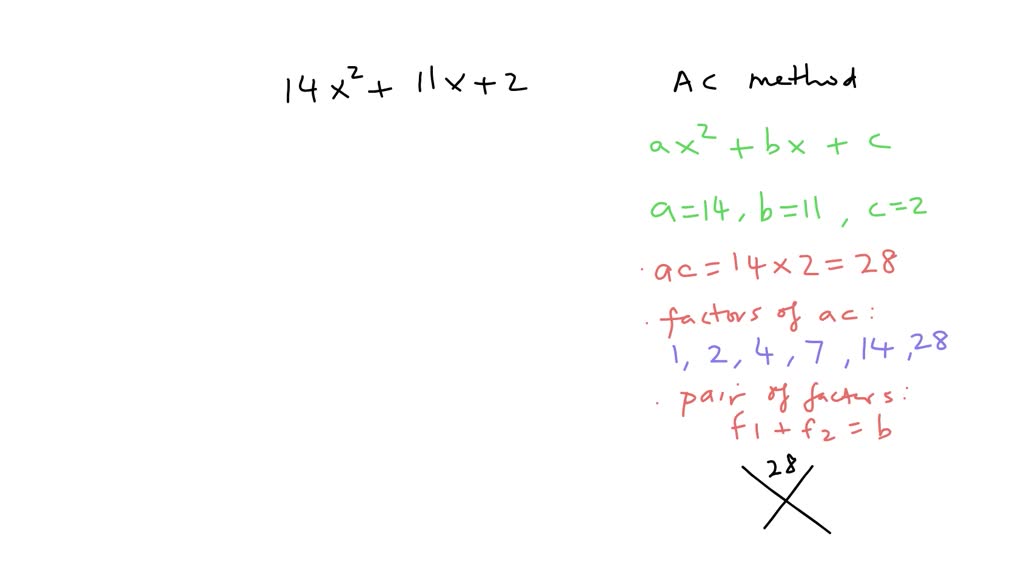 14x² + 11x + 2
AC method
ax² + bx + c
a=14, b=11, c=2
· ac = 14 × 2 = 28
· factors of ac:
1, 2, 4, 7, 14, 28
· pair of factors:
f1 + f2 = b
28